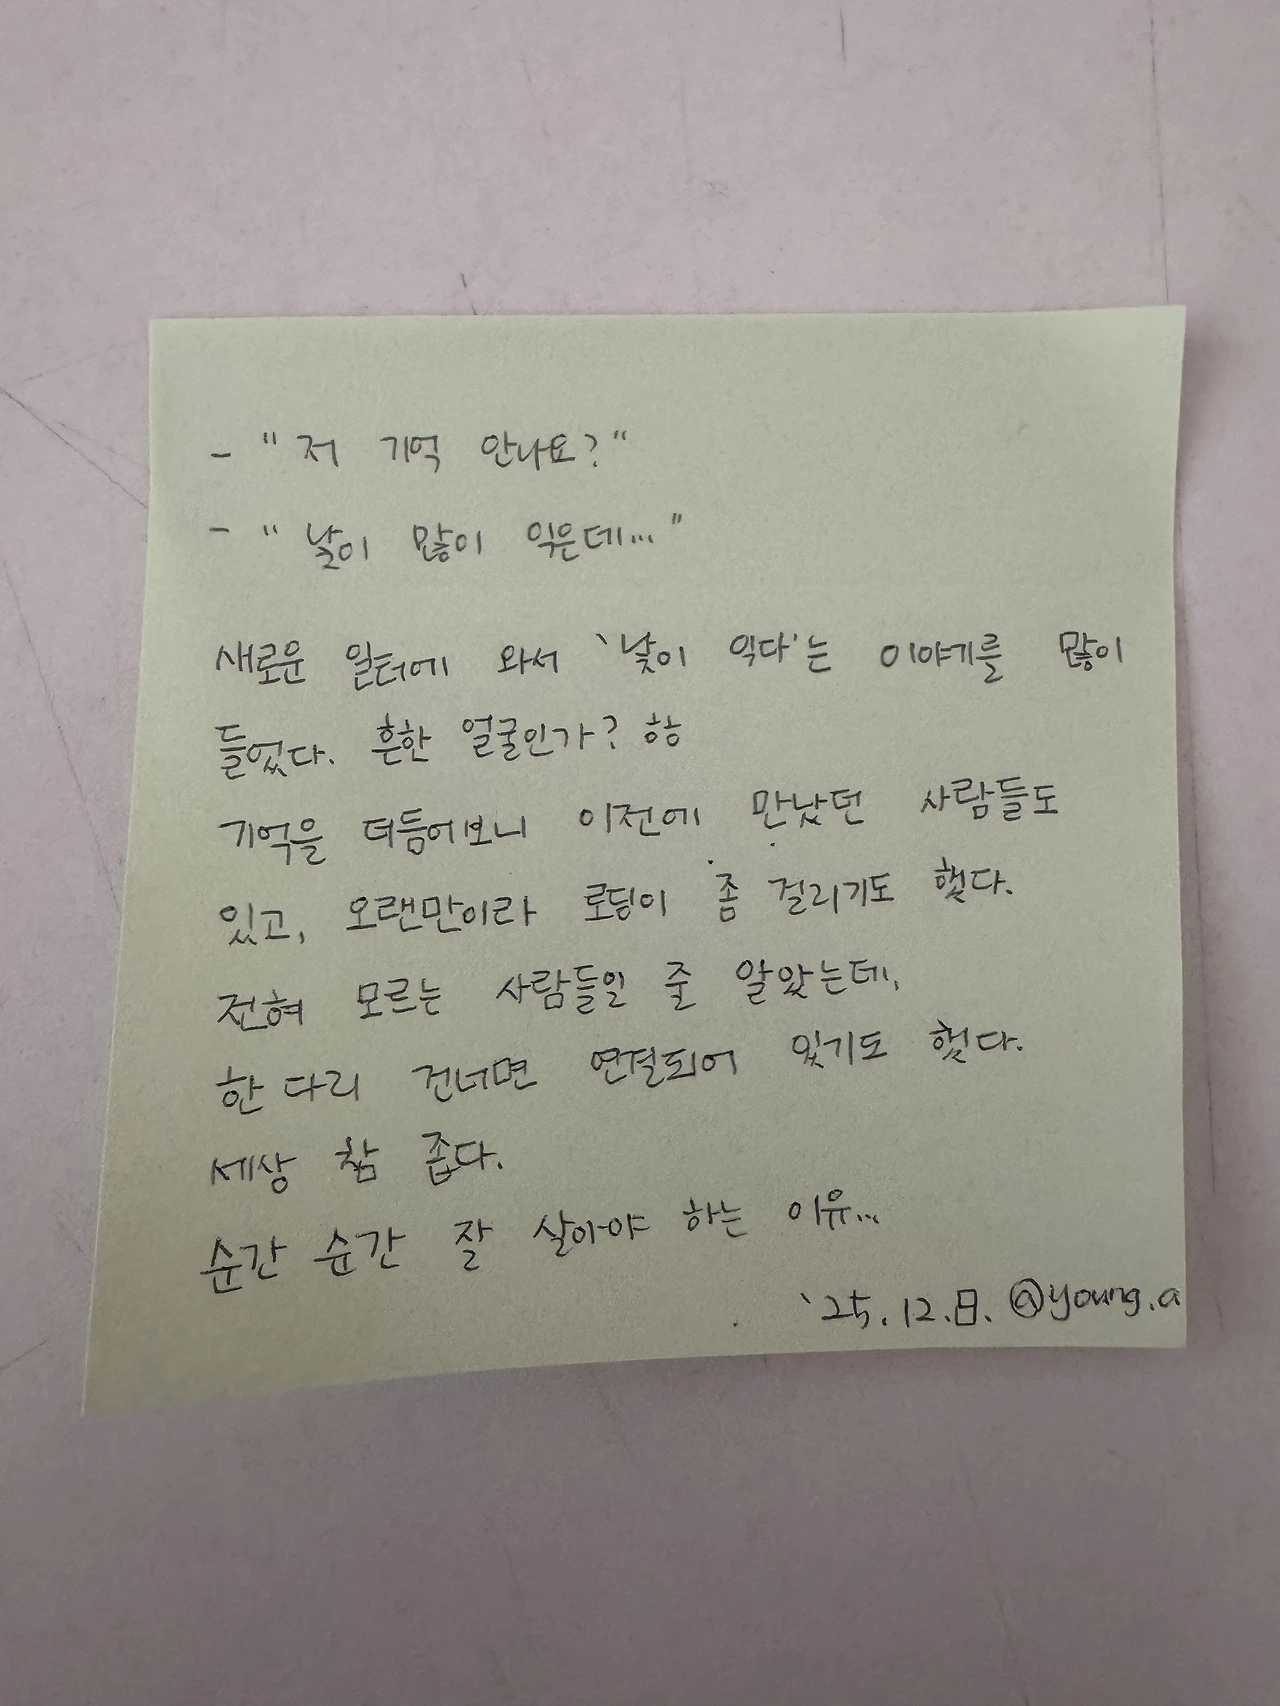 - "저 기억 안나요?"
- "낯이 많이 익은데..."
새로운 일터에 와서 '낯이 익다'는 이야기를 많이
들었다. 흔한 얼굴인가? ㅎㅎ
기억을 더듬어보니 이전에 만났던 사람들도
있고, 오랜만이라 로딩이 좀 걸리기도 했다.
전혀 모르는 사람들인 줄 알았는데,
한 다리 건너면 연결되어 있기도 했다.
세상 참 좁다.
순간 순간 잘 살아야 하는 이유...
'25.12.日. @young.a